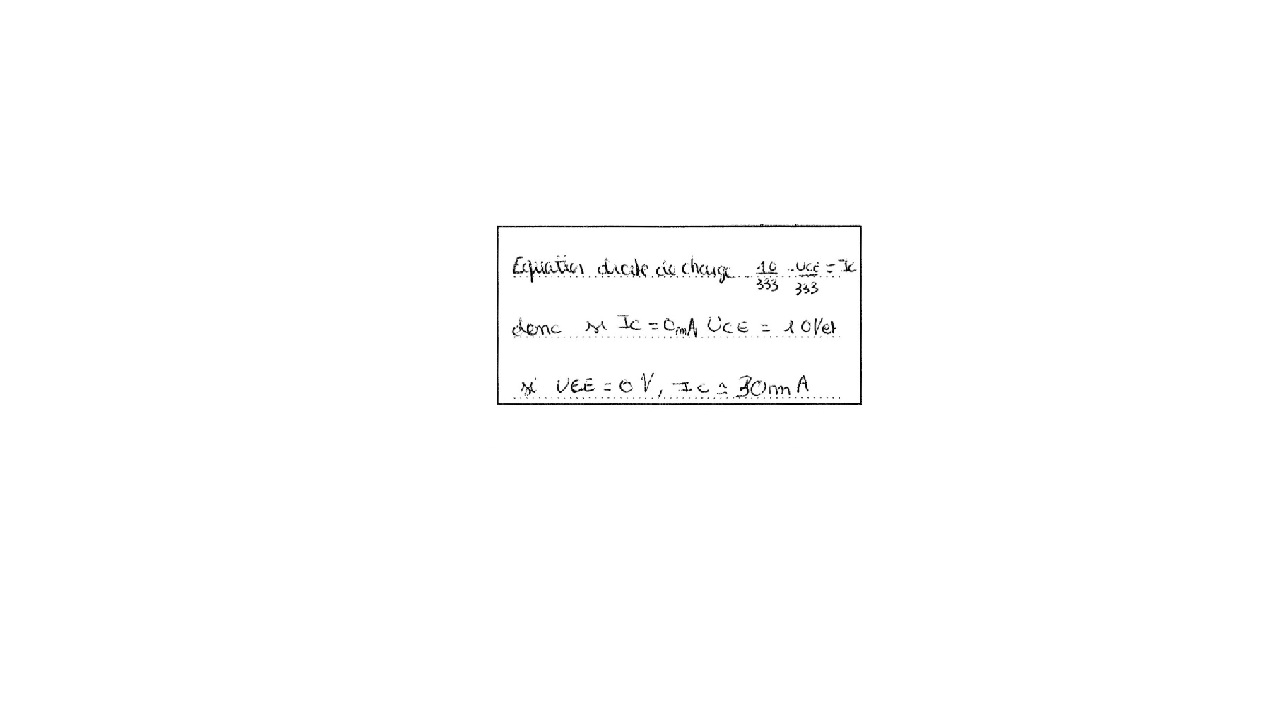 Equation droite de charge 10/333 - UCE/333 = Ic
donc si Ic = 0mA UCE = 10V et
si UCE = 0 V, Ic ≃ 30mA